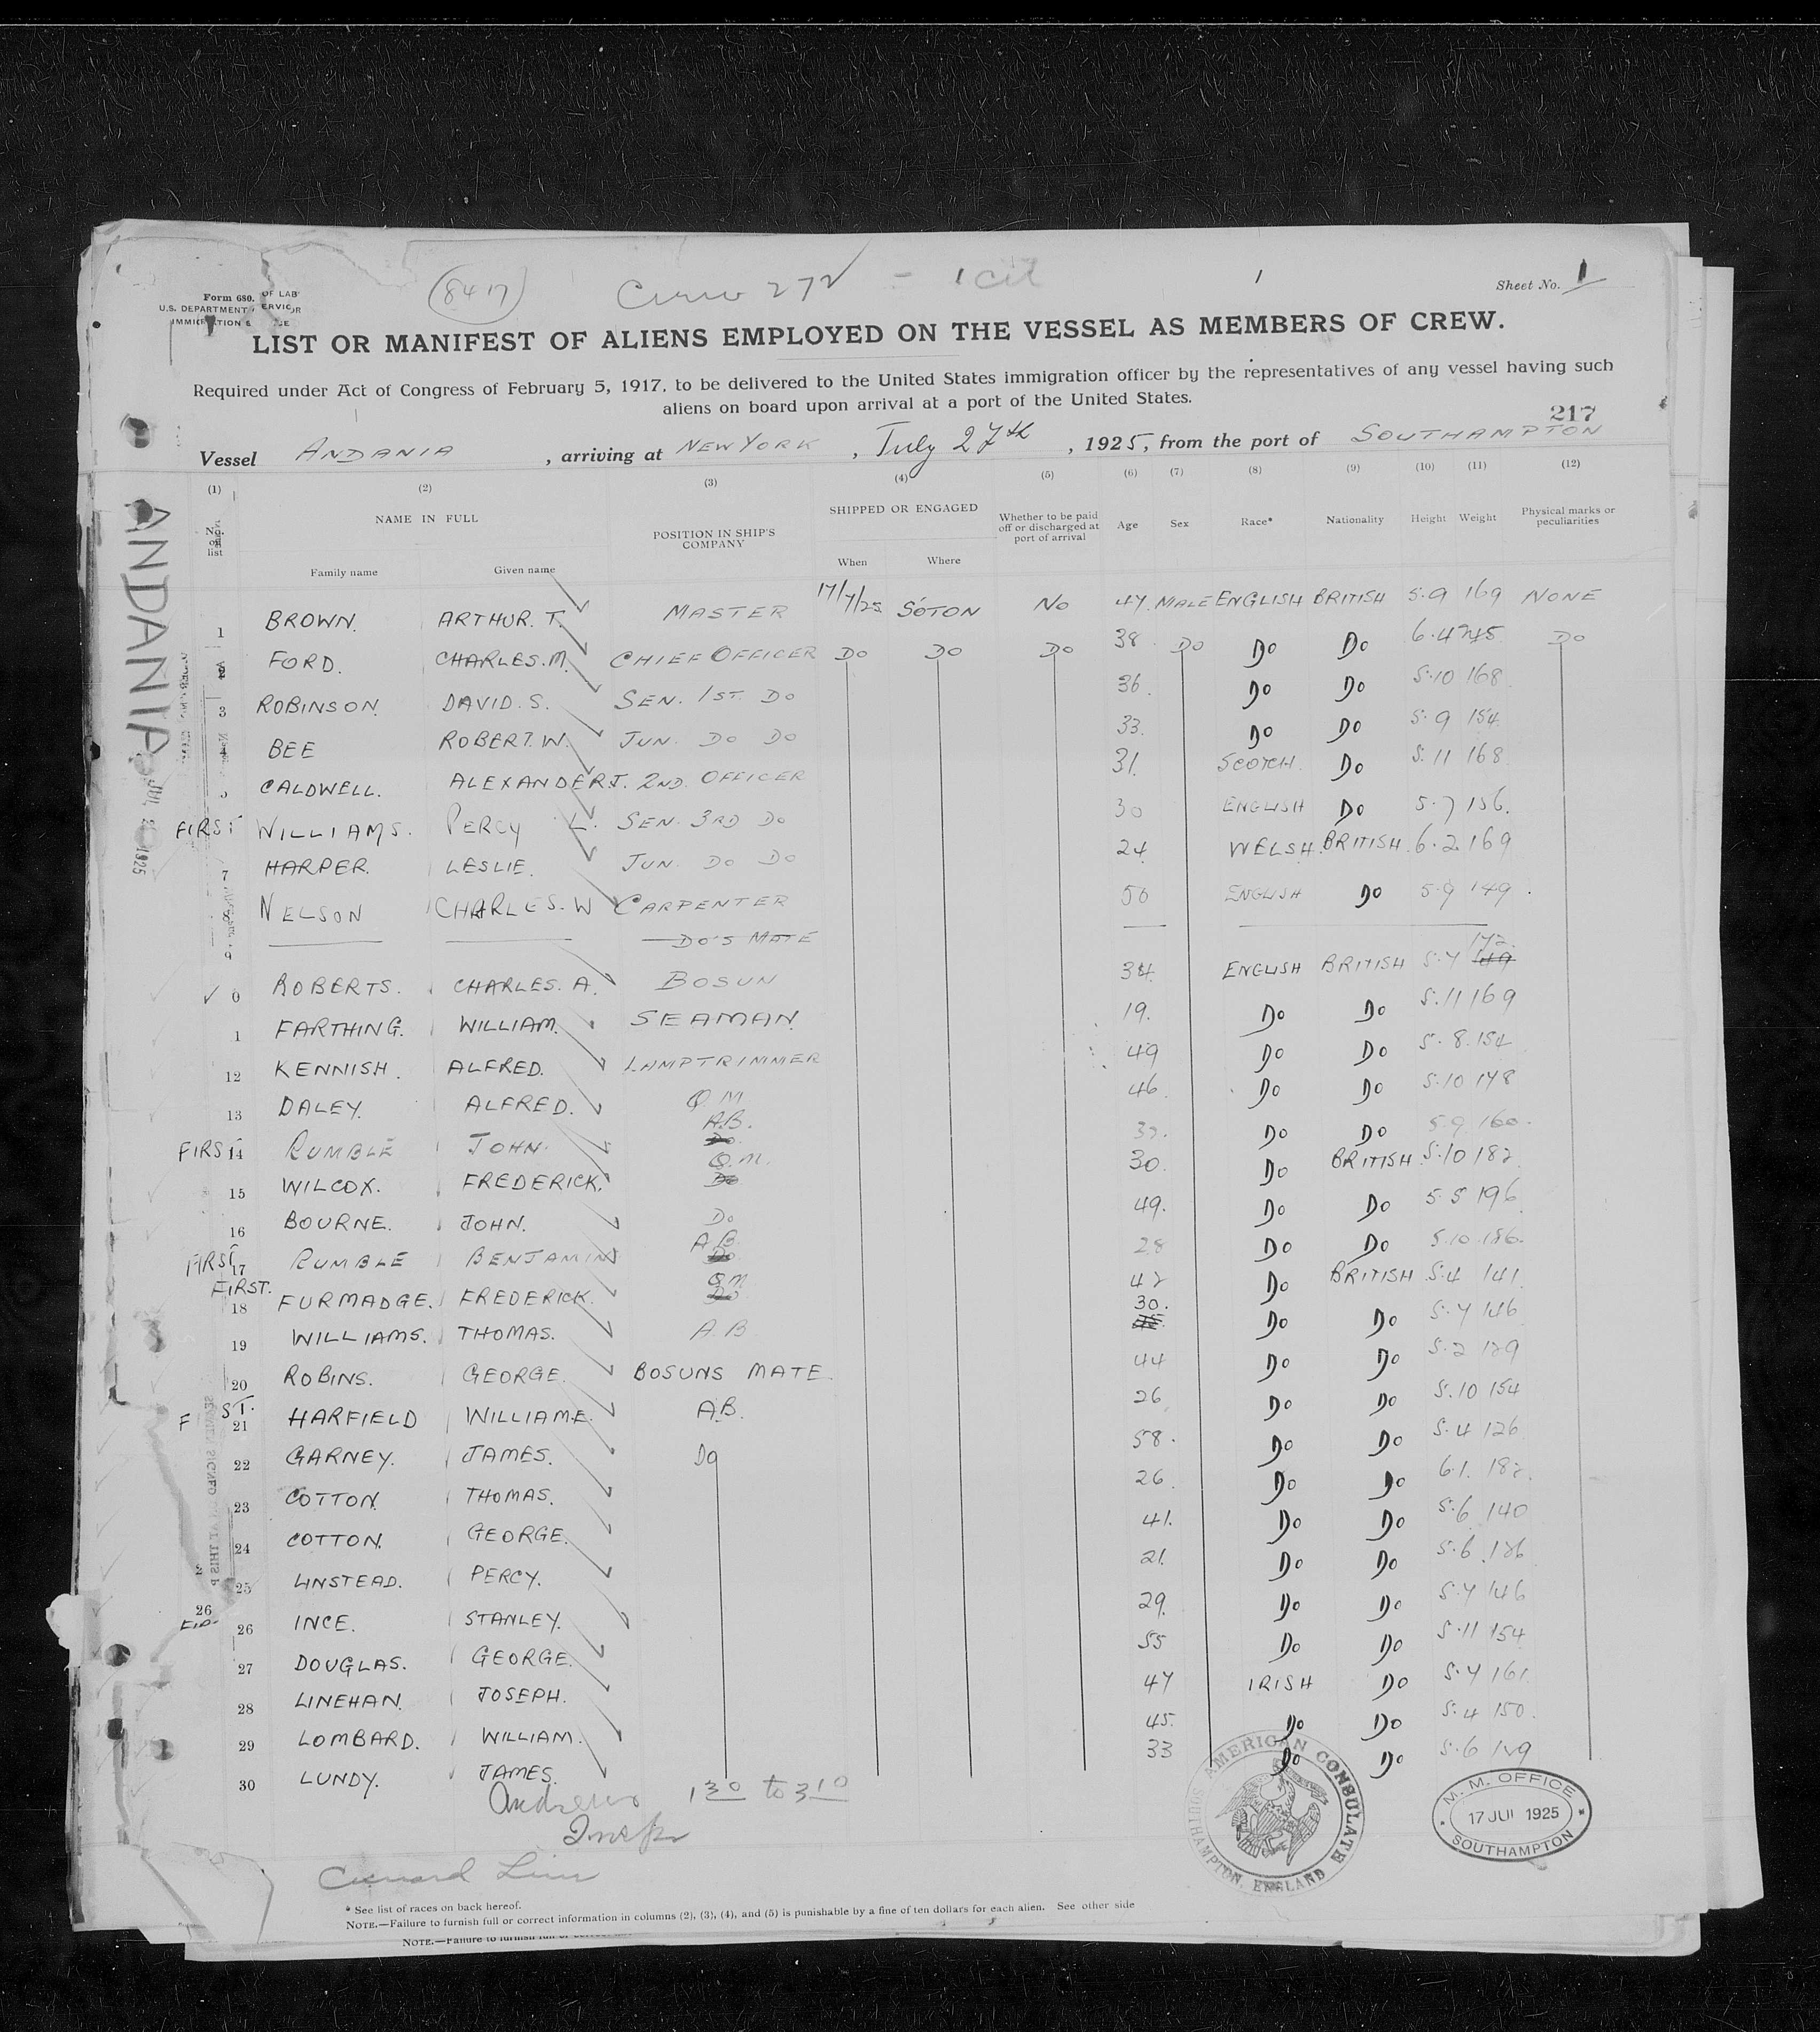 (8417) Crew 272 - 1 Cit 1 Sheet No. 1
Form 680.
U.S. DEPARTMENT OF LABOR
IMMIGRATION SERVICE
LIST OR MANIFEST OF ALIENS EMPLOYED ON THE VESSEL AS MEMBERS OF CREW.
Required under Act of Congress of February 5, 1917, to be delivered to the United States immigration officer by the representatives of any vessel having such
aliens on board upon arrival at a port of the United States.
217
Vessel ANDANIA, arriving at NEW YORK, July 27th, 1925, from the port of SOUTHAMPTON
ANDANIA
(1) (2) (3) (4) (5) (6) (7) (8) (9) (10) (11) (12)
No. on list NAME IN FULL POSITION IN SHIP'S COMPANY SHIPPED OR ENGAGED Whether to be paid off or discharged at port of arrival Age Sex Race* Nationality Height Weight Physical marks or peculiarities
Family name Given name When Where
1 BROWN. ARTHUR. T. MASTER 17/7/25 SOTON NO 47. MALE ENGLISH BRITISH 5.9 169 NONE
2 FORD. CHARLES. M. CHIEF OFFICER DO DO DO 38. DO DO DO 6.4 245 DO
3 ROBINSON. DAVID. S. SEN. 1ST. DO 36. DO DO 5.10 168
4 BEE ROBERT. W. JUN. DO DO 33. DO DO 5.9 154
5 CALDWELL. ALEXANDER J. 2ND. OFFICER 31. SCOTCH. DO 5.11 168
FIRST WILLIAMS. PERCY L. SEN. 3RD DO 30 ENGLISH DO 5.7 156.
7 HARPER. LESLIE. JUN. DO DO 24. WELSH. BRITISH. 6.2 169
8 NELSON CHARLES. W CARPENTER 50 ENGLISH DO 5.9 149.
9 DO'S MATE
0 ROBERTS. CHARLES. A. BOSUN 34. ENGLISH BRITISH 5.7 172 149
1 FARTHING. WILLIAM. SEAMAN. 19. DO DO 5.11 169
12 KENNISH. ALFRED. LAMPTRIMMER 49 DO DO 5.8 154
13 DALEY. ALFRED. Q.M 46. DO DO 5.10 178
FIRST 14 RUMBLE JOHN. A.B. DO DO DO 5.9 160.
15 WILCOX. FREDERICK. Q.M. DO 30. DO BRITISH. 5.10 182
16 BOURNE. JOHN. DO 49. DO DO 5.5 196
FIRST 17 RUMBLE BENJAMIN A.B. DO 28 DO DO 5.10
FIRST. 18 FURMADGE. FREDERICK. Q.M DO 42 DO BRITISH 5.4 141.
19 WILLIAMS. THOMAS. A.B 30. DO DO 5.7
20 ROBINS. GEORGE. BOSUNS MATE. 44 DO DO 5.2 129
21 HARFIELD WILLIAM E. A.B. 26 DO DO 5.10 154
22 GARNEY. JAMES. DO 58. DO DO 5.4 126
23 COTTON. THOMAS. 26. DO DO 6.1. 182.
24 COTTON. GEORGE. 41. DO DO 5.6 140
25 LINSTEAD. PERCY. 21. DO DO 5.6
26 26 INCE. STANLEY. 29. DO DO 5.7 146
27 DOUGLAS. GEORGE. 55 DO DO 5.11 154
28 LINEHAN. JOSEPH. 47 IRISH DO 5.7 161.
29 LOMBARD. WILLIAM. 45. DO DO 5.4 150.
30 LUNDY. JAMES. 33 DO DO 5.6 129
Andrews 1 30 to 3 10
Inspr
AMERICAN CONSULATE SOUTHAMPTON, ENGLAND
M.M. OFFICE
17 JUL 1925
SOUTHAMPTON
Cunard Line
* See list of races on back hereof.
NOTE.—Failure to furnish full or correct information in columns (2), (3), (4), and (5) is punishable by a fine of ten dollars for each alien. See other side